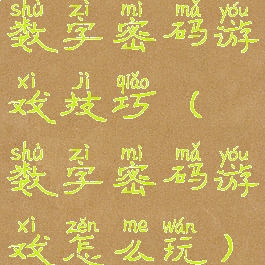 shù zì mì mǎ yóu
数字密码游
xì jì qiǎo
戏技巧（
shù zì mì mǎ yóu
数字密码游
xì zěn me wán
戏怎么玩）